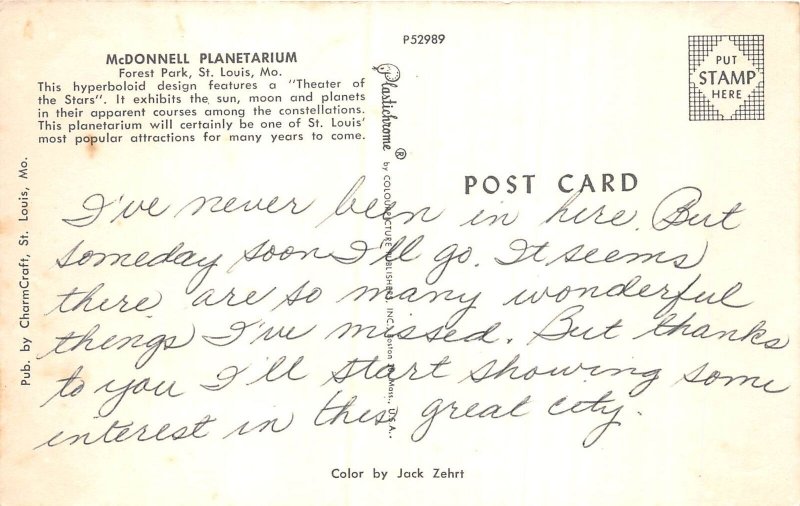 P52989
McDONNELL PLANETARIUM
Forest Park, St. Louis, Mo.
This hyperboloid design features a "Theater of
the Stars". It exhibits the sun, moon and planets
in their apparent courses among the constellations.
This planetarium will certainly be one of St. Louis'
most popular attractions for many years to come.
PUT
STAMP
HERE
Plastichrome®
by COLOURPICTURE PUBLISHERS, INC., Boston 30, Mass., U.S.A.
POST CARD
Pub. by CharmCraft, St. Louis, Mo.
I've never been in here. But
someday soon I'll go. It seems
there are so many wonderful
things I've missed. But thanks
to you I'll start showing some
interest in this great city.
Color by Jack Zehrt